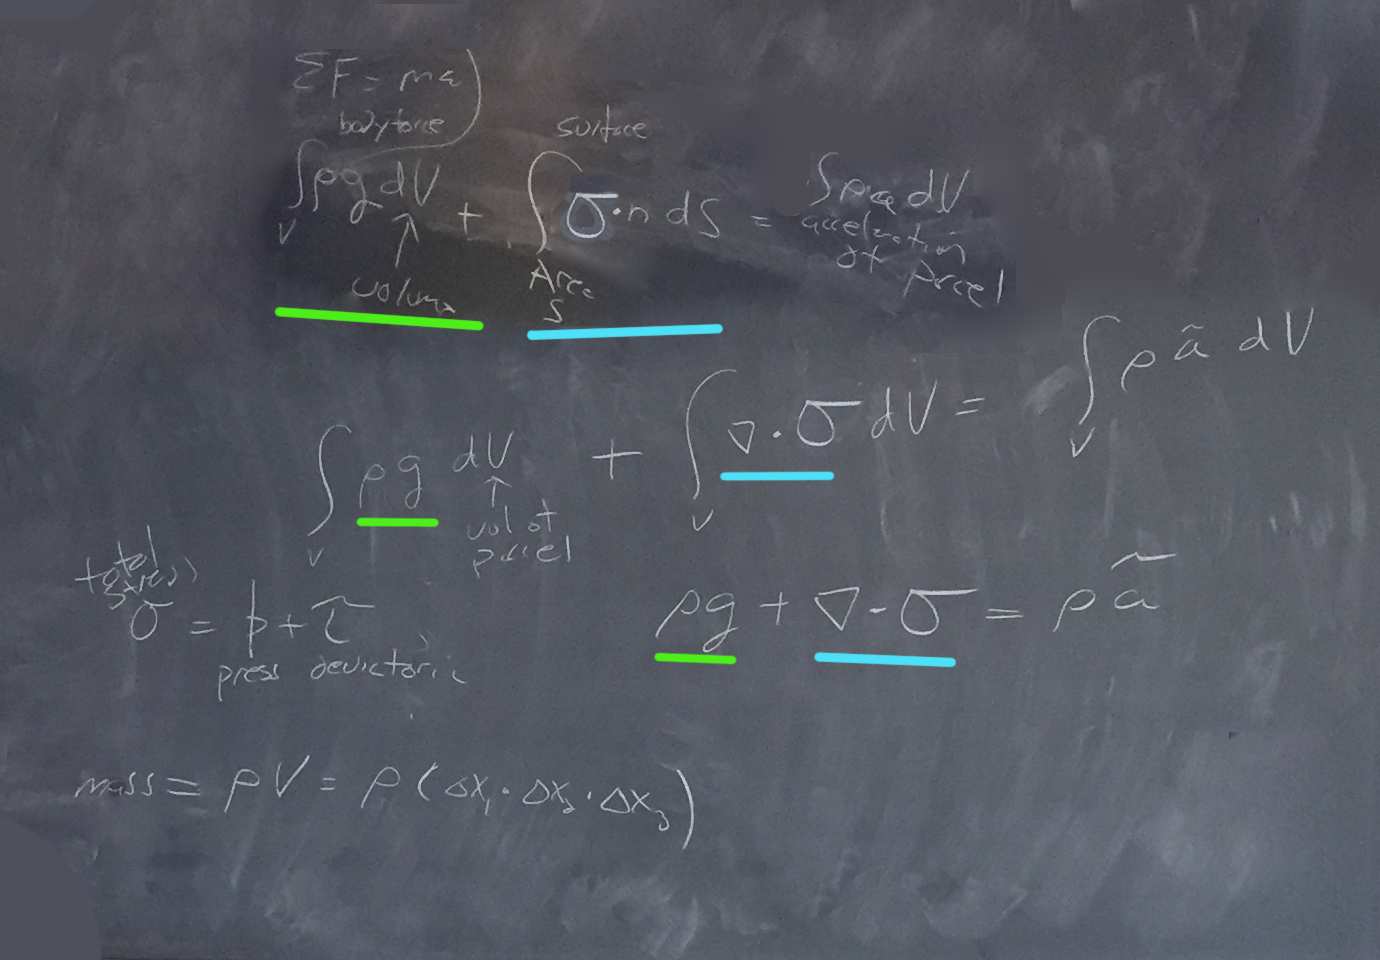 ΣF = ma)
body force
surface
∫ρg dV + ∫σ·n dS = ∫ρa dV
V
volume
Area
S
acceleration
of parcel
∫ρg dV + ∫∇·σ dV = ∫ρã dV
V
V
V
vol of
parcel
total
stress
σ = p + τ
press deviatoric
ρg + ∇·σ = ρã
mass = ρV = ρ(Δx₁·Δx₂·Δx₃)